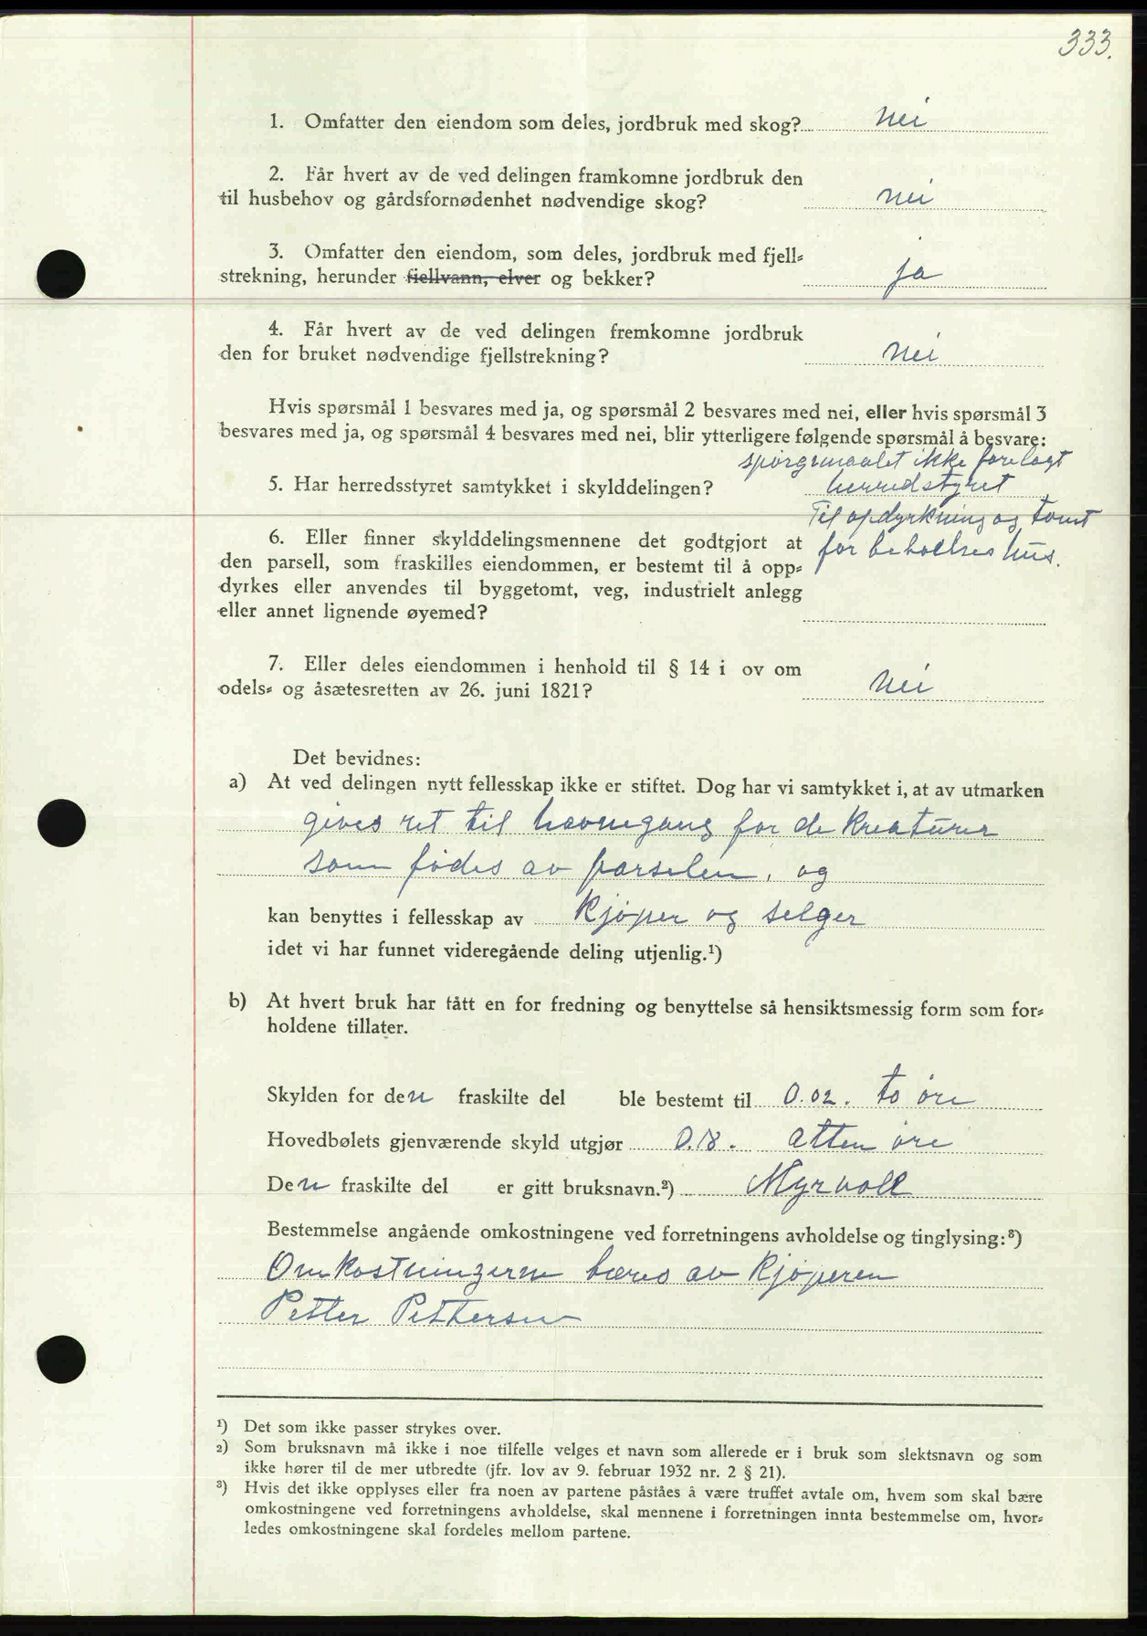 333.
1. Omfatter den eiendom som deles, jordbruk med skog? Nei
2. Får hvert av de ved delingen framkomne jordbruk den
til husbehov og gårdsfornødenhet nødvendige skog? Nei
3. Omfatter den eiendom, som deles, jordbruk med fjell-
strekning, herunder fiellvann, elver og bekker? ja
4. Får hvert av de ved delingen fremkomne jordbruk
den for bruket nødvendige fjellstrekning? Nei
Hvis spørsmål 1 besvares med ja, og spørsmål 2 besvares med nei, eller hvis spørsmål 3
besvares med ja, og spørsmål 4 besvares med nei, blir ytterligere følgende spørsmål å besvare:
spørgsmaalet ikke forelagt
5. Har herredsstyret samtykket i skylddelingen? herredstyret
Til opdyrkning og tomt
6. Eller finner skylddelingsmennene det godtgjort at for beholtses hus.
den parsell, som fraskilles eiendommen, er bestemt til å opp-
dyrkes eller anvendes til byggetomt, veg, industrielt anlegg
eller annet lignende øyemed?
7. Eller deles eiendommen i henhold til § 14 i ov om
odels- og åsætesretten av 26. juni 1821? Nei
Det bevidnes:
a) At ved delingen nytt fellesskap ikke er stiftet. Dog har vi samtykket i, at av utmarken
gives ret til havnegang for de kreaturer
som fødes av parselen, og
kan benyttes i fellesskap av Kjøper og selger
idet vi har funnet videregående deling utjenlig.¹)
b) At hvert bruk har fått en for fredning og benyttelse så hensiktsmessig form som for-
holdene tillater.
Skylden for den fraskilte del ble bestemt til 0.02. to øre
Hovedbølets gjenværende skyld utgjør 0.18. atten øre
Den fraskilte del er gitt bruksnavn.²) Myrvoll
Bestemmelse angående omkostningene ved forretningens avholdelse og tinglysing:³)
Omkostningerne bæres av Kjøperen
Petter Pettersen
¹) Det som ikke passer strykes over.
²) Som bruksnavn må ikke i noe tilfelle velges et navn som allerede er i bruk som slektsnavn og som
ikke hører til de mer utbredte (jfr. lov av 9. februar 1932 nr. 2 § 21).
³) Hvis det ikke opplyses eller fra noen av partene påståes å være truffet avtale om, hvem som skal bære
omkostningene ved forretningens avholdelse, skal mennene i forretningen innta bestemmelse om, hvor-
ledes omkostningene skal fordeles mellom partene.